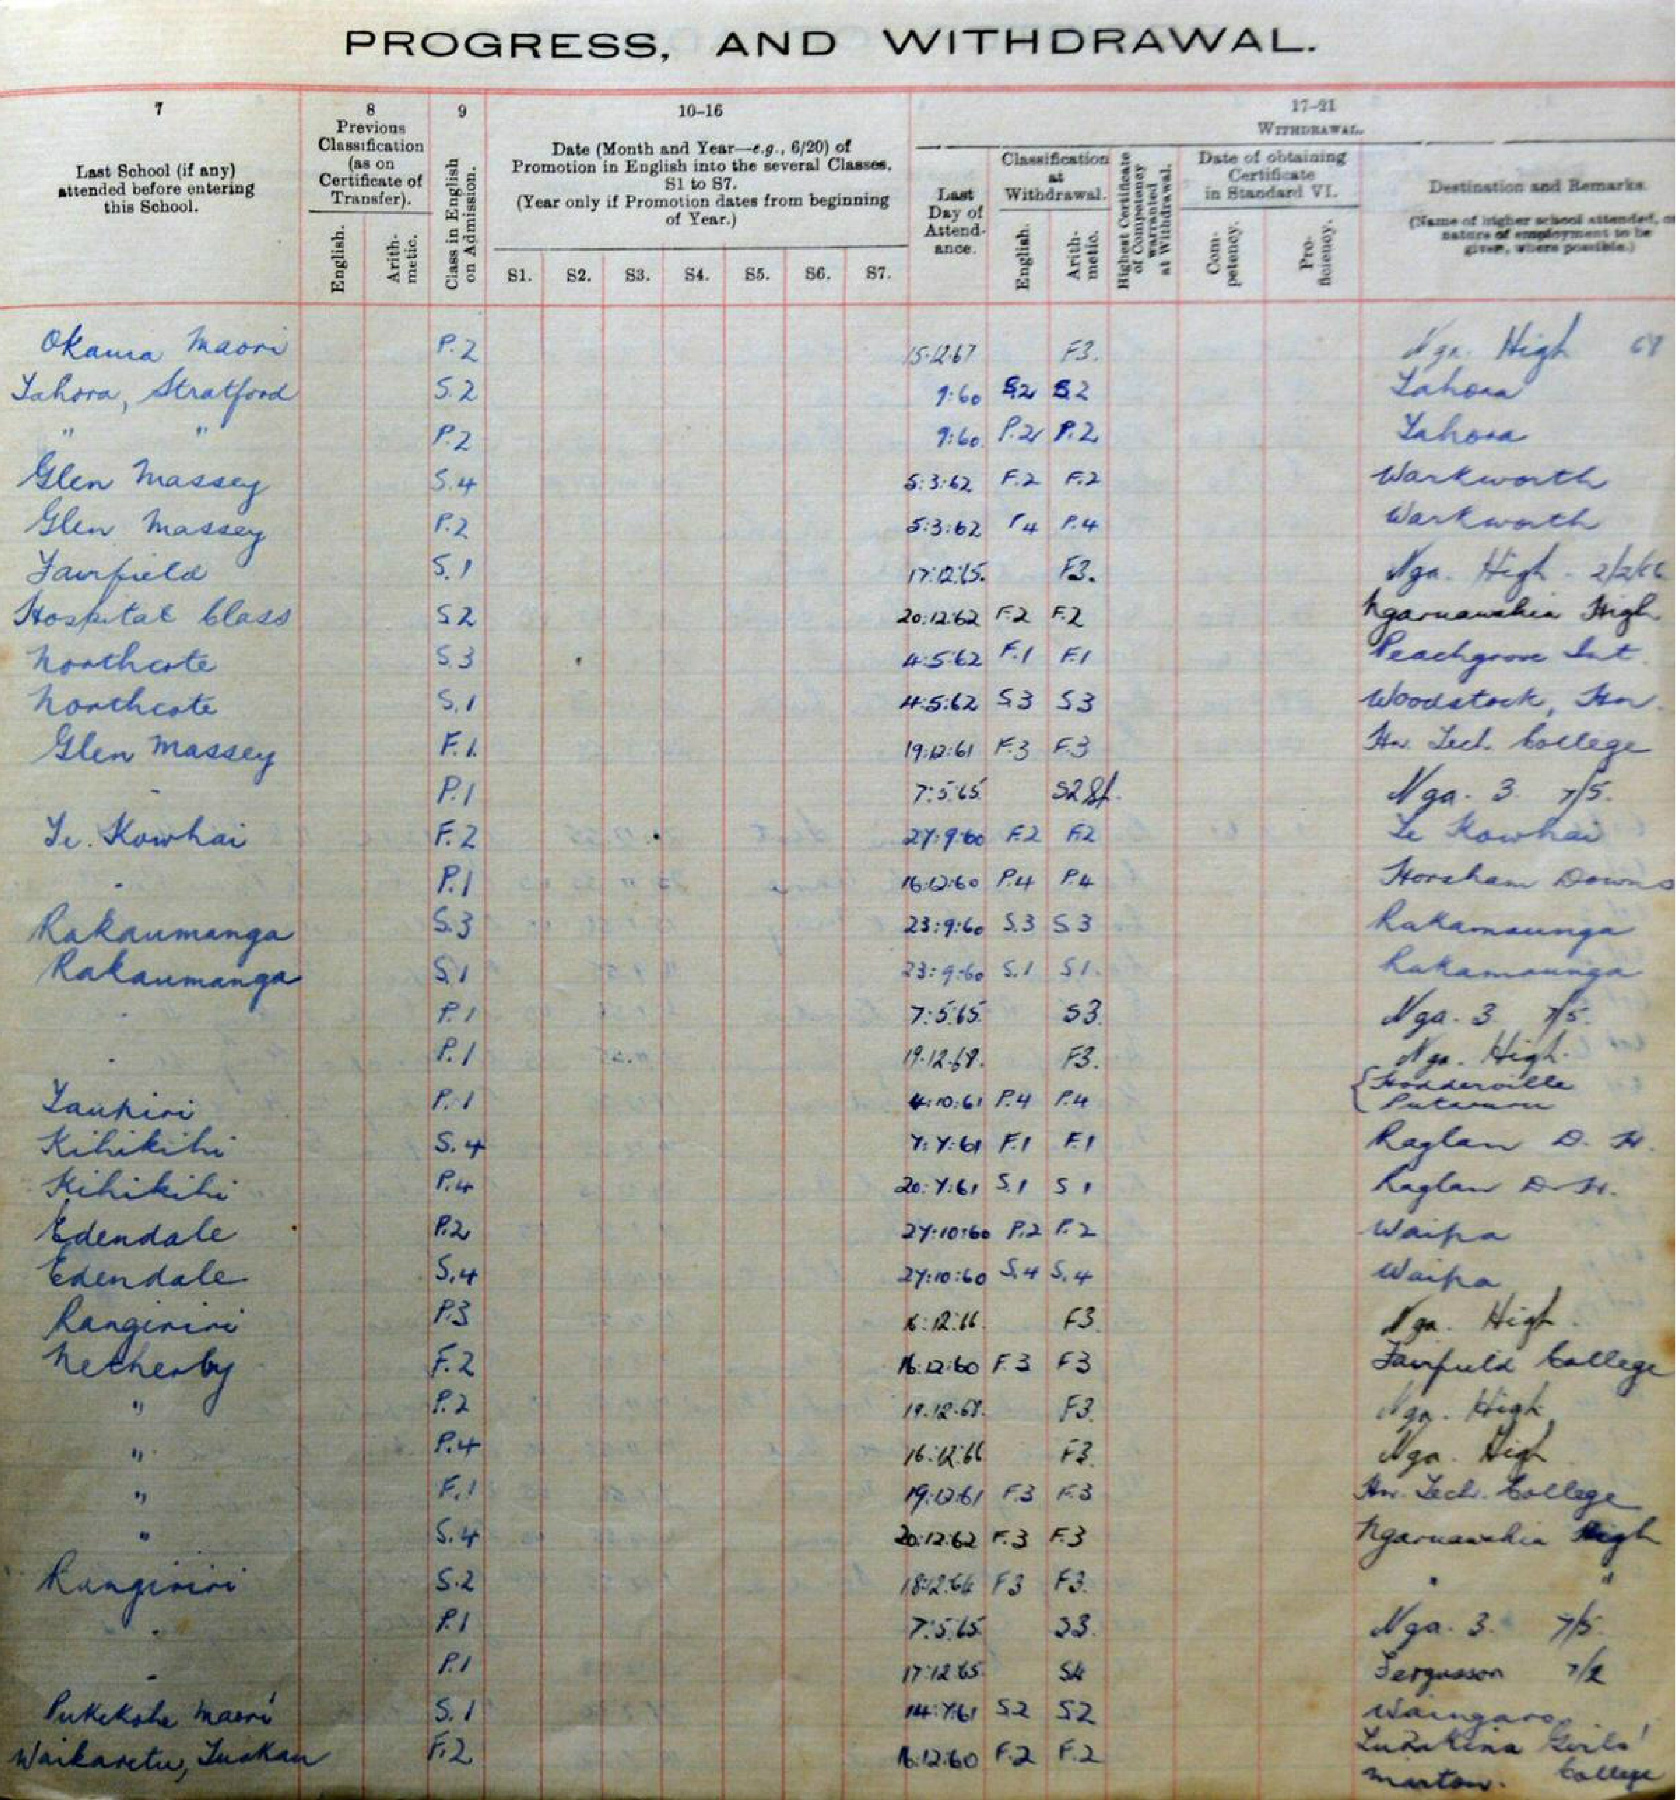 PROGRESS, AND WITHDRAWAL.
7 8 9 10-16 17-21
Last School (if any) attended before entering this School.
Previous Classification (as on Certificate of Transfer).
English. Arith-metic.
Class in English on Admission.
Date (Month and Year—e.g., 6/20) of Promotion in English into the several Classes, S1 to S7.
(Year only if Promotion dates from beginning of Year.)
S1. S2. S3. S4. S5. S6. S7.
WITHDRAWAL.
Last Day of Attend-ance.
Classification at Withdrawal.
English. Arith-metic.
Highest Certificate of Competency warranted at Withdrawal.
Date of obtaining Certificate in Standard VI.
Com-petency. Pro-ficiency.
Destination and Remarks.
(Name of higher school attended, or nature of employment to be given, where possible.)
Okauia Maori P.2 15.12.67 F3. Nga. High
Tahora, Stratford S.2 9:60 S2 S2 Tahora
" " P.2 9:60. P.2 P.2 Tahora
Glen Massey S.4 5:3:62 F.2 F.2 Warkworth
Glen Massey P.2 5:3:62 P4 P.4 Warkworth
Fairfield S.1 17:12:65. F3. Nga. High - 2/2/66
Hospital Class S2 20:12:62 F.2 F.2 Ngaruawahia High
Northcote S.3 4:5:62 F.1 F.1 Peachgrove Int.
Northcote S.1 4:5:62 S.3 S3 Woodstock, Hn.
Glen Massey F.1. 19:12:61 F.3 F.3 Hn. Tech. College
- P.1 7:5:65 S2 Nga. 3. 7/5.
Te. Kowhai F.2 27:9:60 F.2 F.2 Te Kowhai
- P.1 16:12:60 P.4 P.4 Horsham Downs
Rakaumanga S.3 23:9:60 S.3 S3 Rakamaunga
Rakaumanga S.1 23:9:60 S.1 S1. Rakamaunga
- P.1 7:5:65. S3. Nga. 3 7/5.
- P.1 19.12.68. F3. Nga. High.
Taupiri P.1 4:10:61 P.4 P.4 { Hodderville
Putaruru
Kihikihi S.4 7:7:61 F.1 F.1 Raglan D. H.
Kihikihi P.4 20:7:61 S.1 S1 Raglan D. H.
Edendale P.2 27:10:60 P.2 P.2 Waipa
Edendale S.4 27:10:60 S.4 S.4 Waipa
Rangiriri P.3 16:12:66. F3. Nga. High.
Netherby F.2 16:12:60 F.3 F3 Fairfield College
" P.2 19.12.68. F3. Nga. High
" P.4 16:12:66 F3. Nga. High
" F.1 19:12:61 F.3 F.3 Hn. Tech. College
" S.4 20:12:62 F.3 F.3 Ngaruawahia High
Rangiriri S.2 18:12:64 F3 F3. " "
- P.1 7:5:65 S3. Nga. 3. 7/5.
- P.1 17:12:65. S4 Fergusson 7/2
Pukekohe Maori S.1 14:7:61 S2 S2 Waingaro
Waikaretu, Tuakau F.2 16:12:60 F.2 F.2 Turakina Girls'
Marton. College